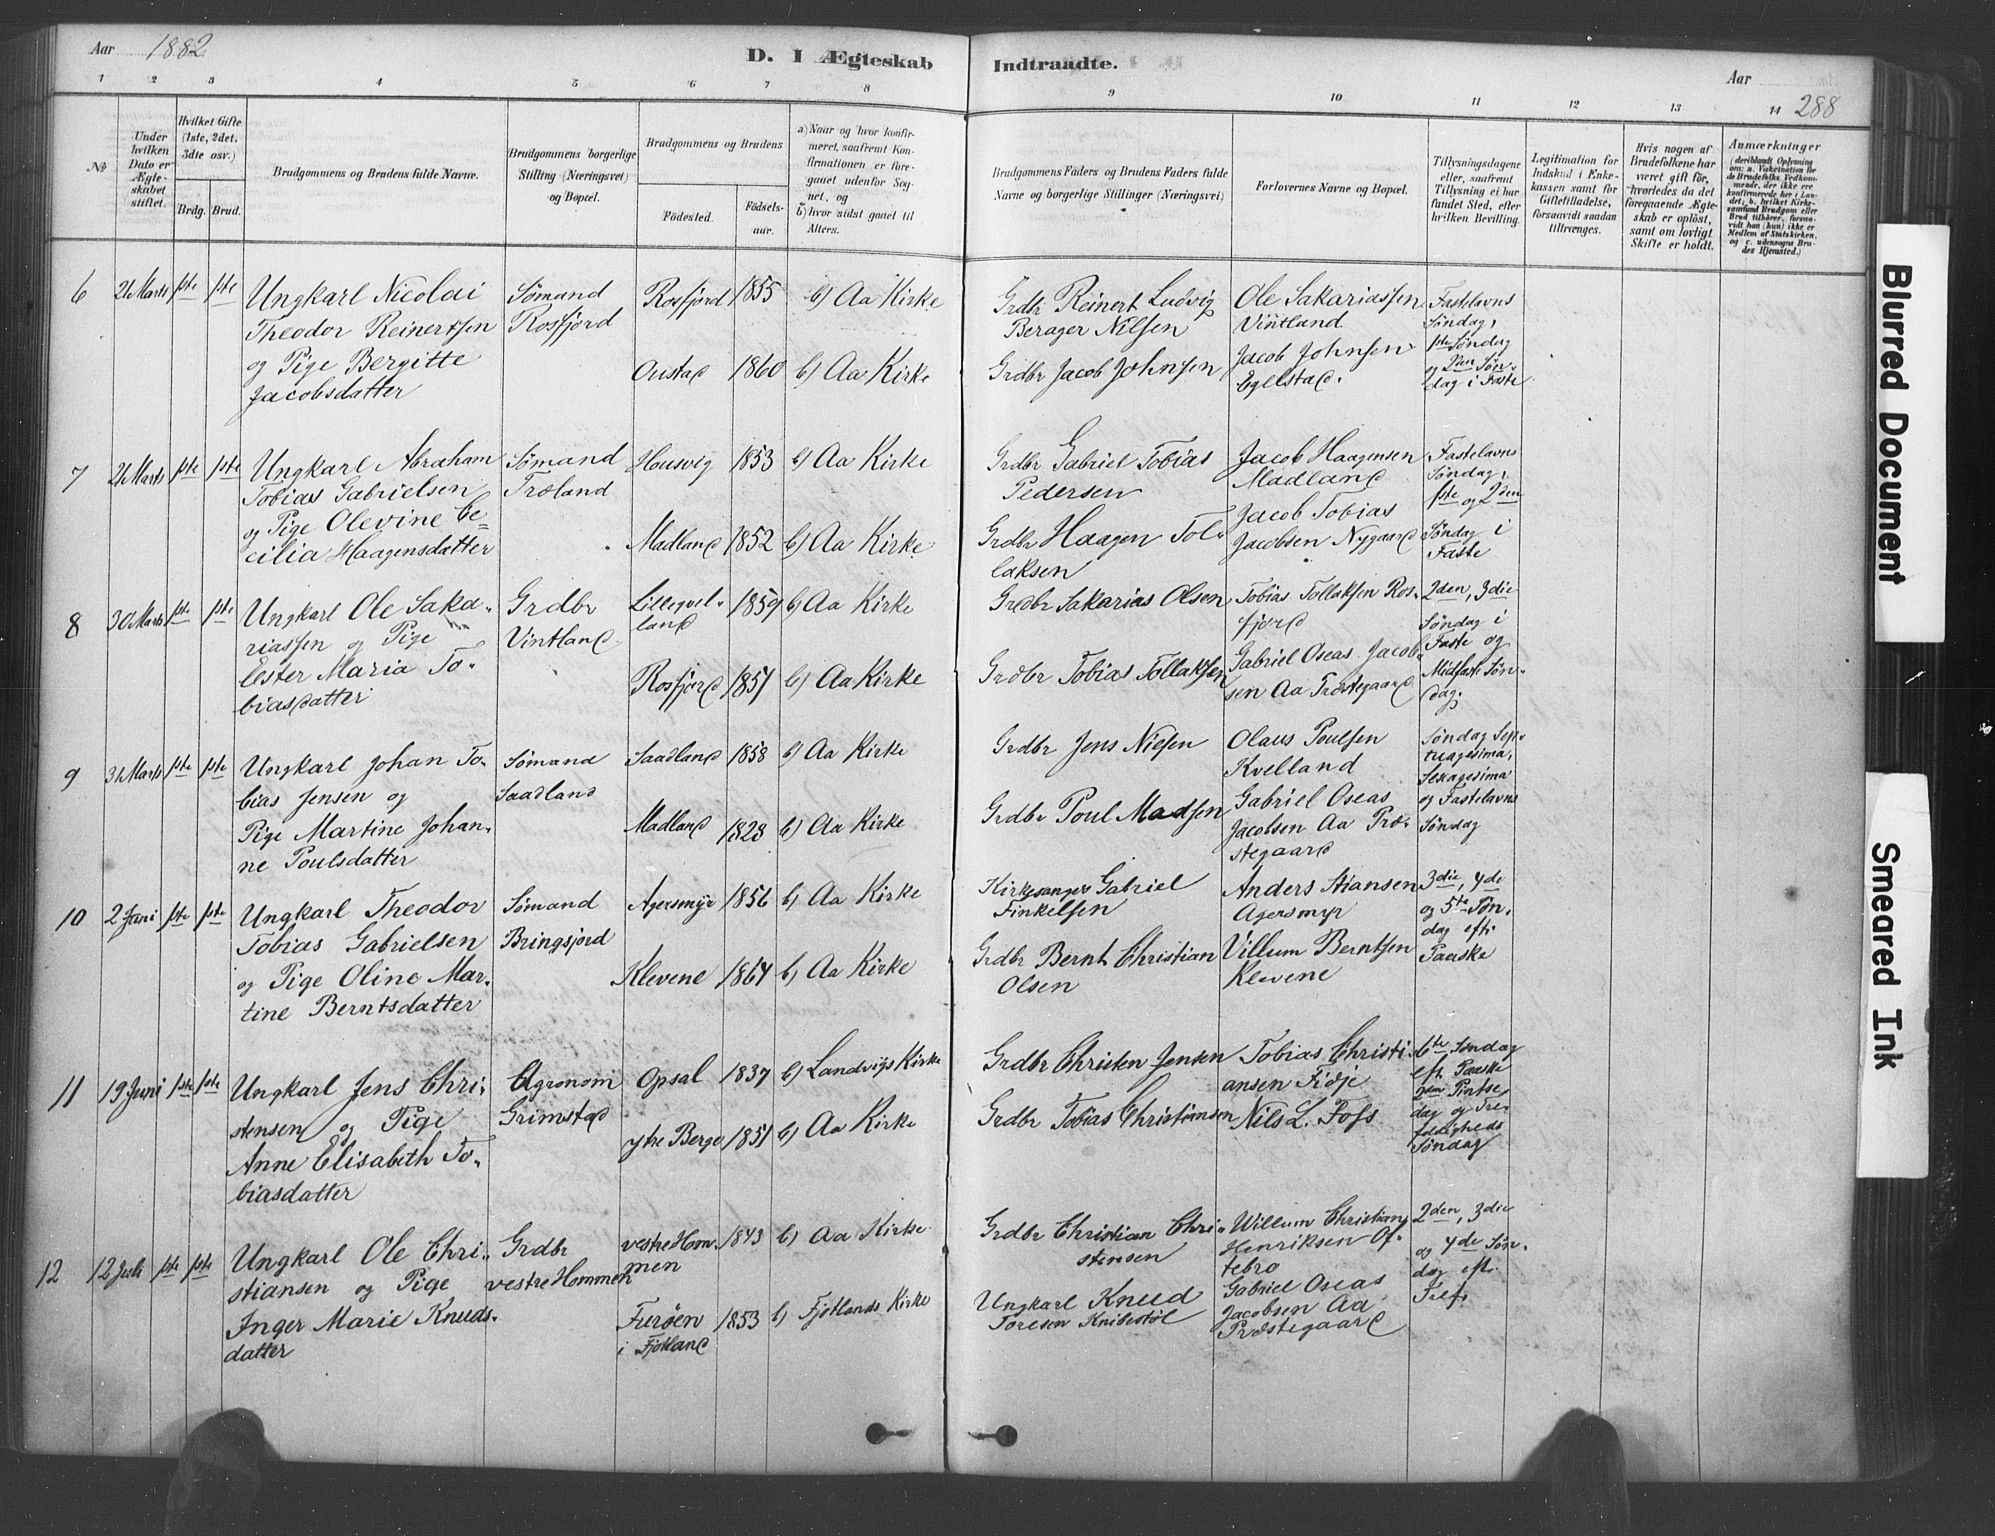 Aar 1882
D. I Ægteskab Indtraadte.
Aar
288
1 2 3 4 5 6 7 8 9 10 11 12 13 14
№
Under hvilken Dato er Ægteskabet stiftet.
Hvilket Gifte (1ste, 2det, 3dte osv.)
Brdg. Brud.
Brudgommens og Brudens fulde Navne.
Brudgommens borgerlige Stilling (Næringsvei) og Bopæl.
Brudgommens og Brudens
Födested.
Födsels-aar.
a) Naar og hvor konfirmeret, saafremt Konfirmationen er foregaaet udenfor Sognet, og
b) hvor sidst gaaet til Alters.
Brudgommens Faders og Brudens Faders fulde Navne og borgerlige Stillinger (Næringsvei)
Forlovernes Navne og Bopæl.
Tillysningsdagene eller, saafremt Tillysning ei har fundet Sted, efter hvilken Bevilling.
Legitimation for Indskud i Enkekassen samt for Giftetilladelse, forsaavidt saadan tiltrænges.
Hvis nogen af Brudefolkene har været gift för, hvorledes da det foregaaende Ægteskab er oplöst, samt om lovligt Skifte er holdt.
Anmærkninger
(deriblandt Oplysning om: a. Vakcination for de Brudefolks Vedkommende, der ikke ere konfirmerede her i Landet; b. hvilket Kirkesamfund Brudgom eller Brud tilhörer, forsaavidt han (hun) ikke er Medlem af Statskirken, og c. udensogns Brudes Hjemsted.)
6 21 Marts 1ste 1ste
Ungkarl Nicolai
Theodor Reinertsen
og Pige Bergitte
Jacobsdatter
Sømand
Rosfjord
Rosfjord 1855 b) Aa Kirke
Oustad 1860 b) Aa Kirke
Grdbr Reinert Ludvig
Berager Nilsen
Grdbr Jacob Johnsen
Ole Sakariassen
Vintland
Jacob Johnsen
Egelstad.
Fastelavns
Søndag,
1ste Søndag
og 2den Søn-
dag i Faste
7 21 Marts 1ste 1ste
Ungkarl Abraham
Tobias Gabrielsen
og Pige Olevine Ce-
cilia Haagensdatter
Sømand
Træland
Housvig 1853 b) Aa Kirke
Madland 1852 b) Aa Kirke
Grdbr Gabriel Tobias
Pedersen
Grdbr Haagen Tol-
laksen
Jacob Haagensen
Madland
Jacob Tobias
Jacobsen Nygaard
Fastelavns
Søndag,
1ste og 2den
Søndag i
Faste
8 30 Marts 1ste 1ste
Ungkarl Ole Saka-
riassen og Pige
Ester Maria To-
biasdatter
Grdbr
Vintland
Lilleqvel-
land 1859 b) Aa Kirke
Rosfjord 1851 b) Aa Kirke
Grdbr Sakarias Olsen
Grdbr Tobias Tollaksen
Tobias Tollaksen Ros-
fjord
Gabriel Oseas Jacob-
sen Aa Præstegaard
2den, 3die
Søndag i
Faste og
Midfaste Søn-
dag.
9 31 Marts 1ste 1ste
Ungkarl Johan To-
bias Jensen og
Pige Martine Johan-
ne Poulsdatter
Sømand
Saadland
Saadland 1858 b) Aa Kirke
Madland 1828 b) Aa Kirke
Grdbr Jens Nielsen
Grdbr Poul Madsen
Olaus Poulsen
Kvelland
Gabriel Oseas
Jacobsen Aa Præ-
stegaard
Søndag Sep-
tuagesima,
Sexagesima
og Fastelavns
Søndag
10 2 Juni 1ste 1ste
Ungkarl Theodor
Tobias Gabrielsen
og Pige Oline Mar-
tine Berntsdatter
Sømand
Bringsjord
Agersmyr 1856 b) Aa Kirke
Klevene 1864 b) Aa Kirke
Kirkesanger Gabriel
Finkelsen
Grdbr Bernt Christian
Olsen
Anders Stiansen
Agersmyr
Villum Berntsen
Klevene
3die, 4de
og 5te Søn-
dag eft.
Paaske
11 19 Juni 1ste 1ste
Ungkarl Jens Chri-
stensen og Pige
Anne Elisabeth To-
biasdatter
Agronom
Grimstad
Opsal 1837 b) Landvigs Kirke
ytre Berge 1851 b) Aa Kirke
Grdbr Christen Jensen
Grdbr Tobias Christiansen
Tobias Christi-
ansen Fidje
Nils L. Foss
6te Søndag
eft. Paaske
2den Pintse-
dag og Tre-
foldigheds
Søndag
12 12 Juli 1ste 1ste
Ungkarl Ole Chri-
stiansen og Pige
Inger Marie Knuds-
datter
Grdbr
vestre Hommen
vestre Hom-
men 1843 b) Aa Kirke
Furøen
i Fjotland 1853 b) Fjotlands Kirke
Grdbr Christian Chri-
stensen
Ungkarl Knud
Toresen Knibestøl
Willum Christian
Henriksen Of-
tebro
Gabriel Oseas
Jacobsen Aa
Præstegaard
2den, 3die
og 4de Søn-
dag eft.
Tref.
Blurred Document
Smeared Ink